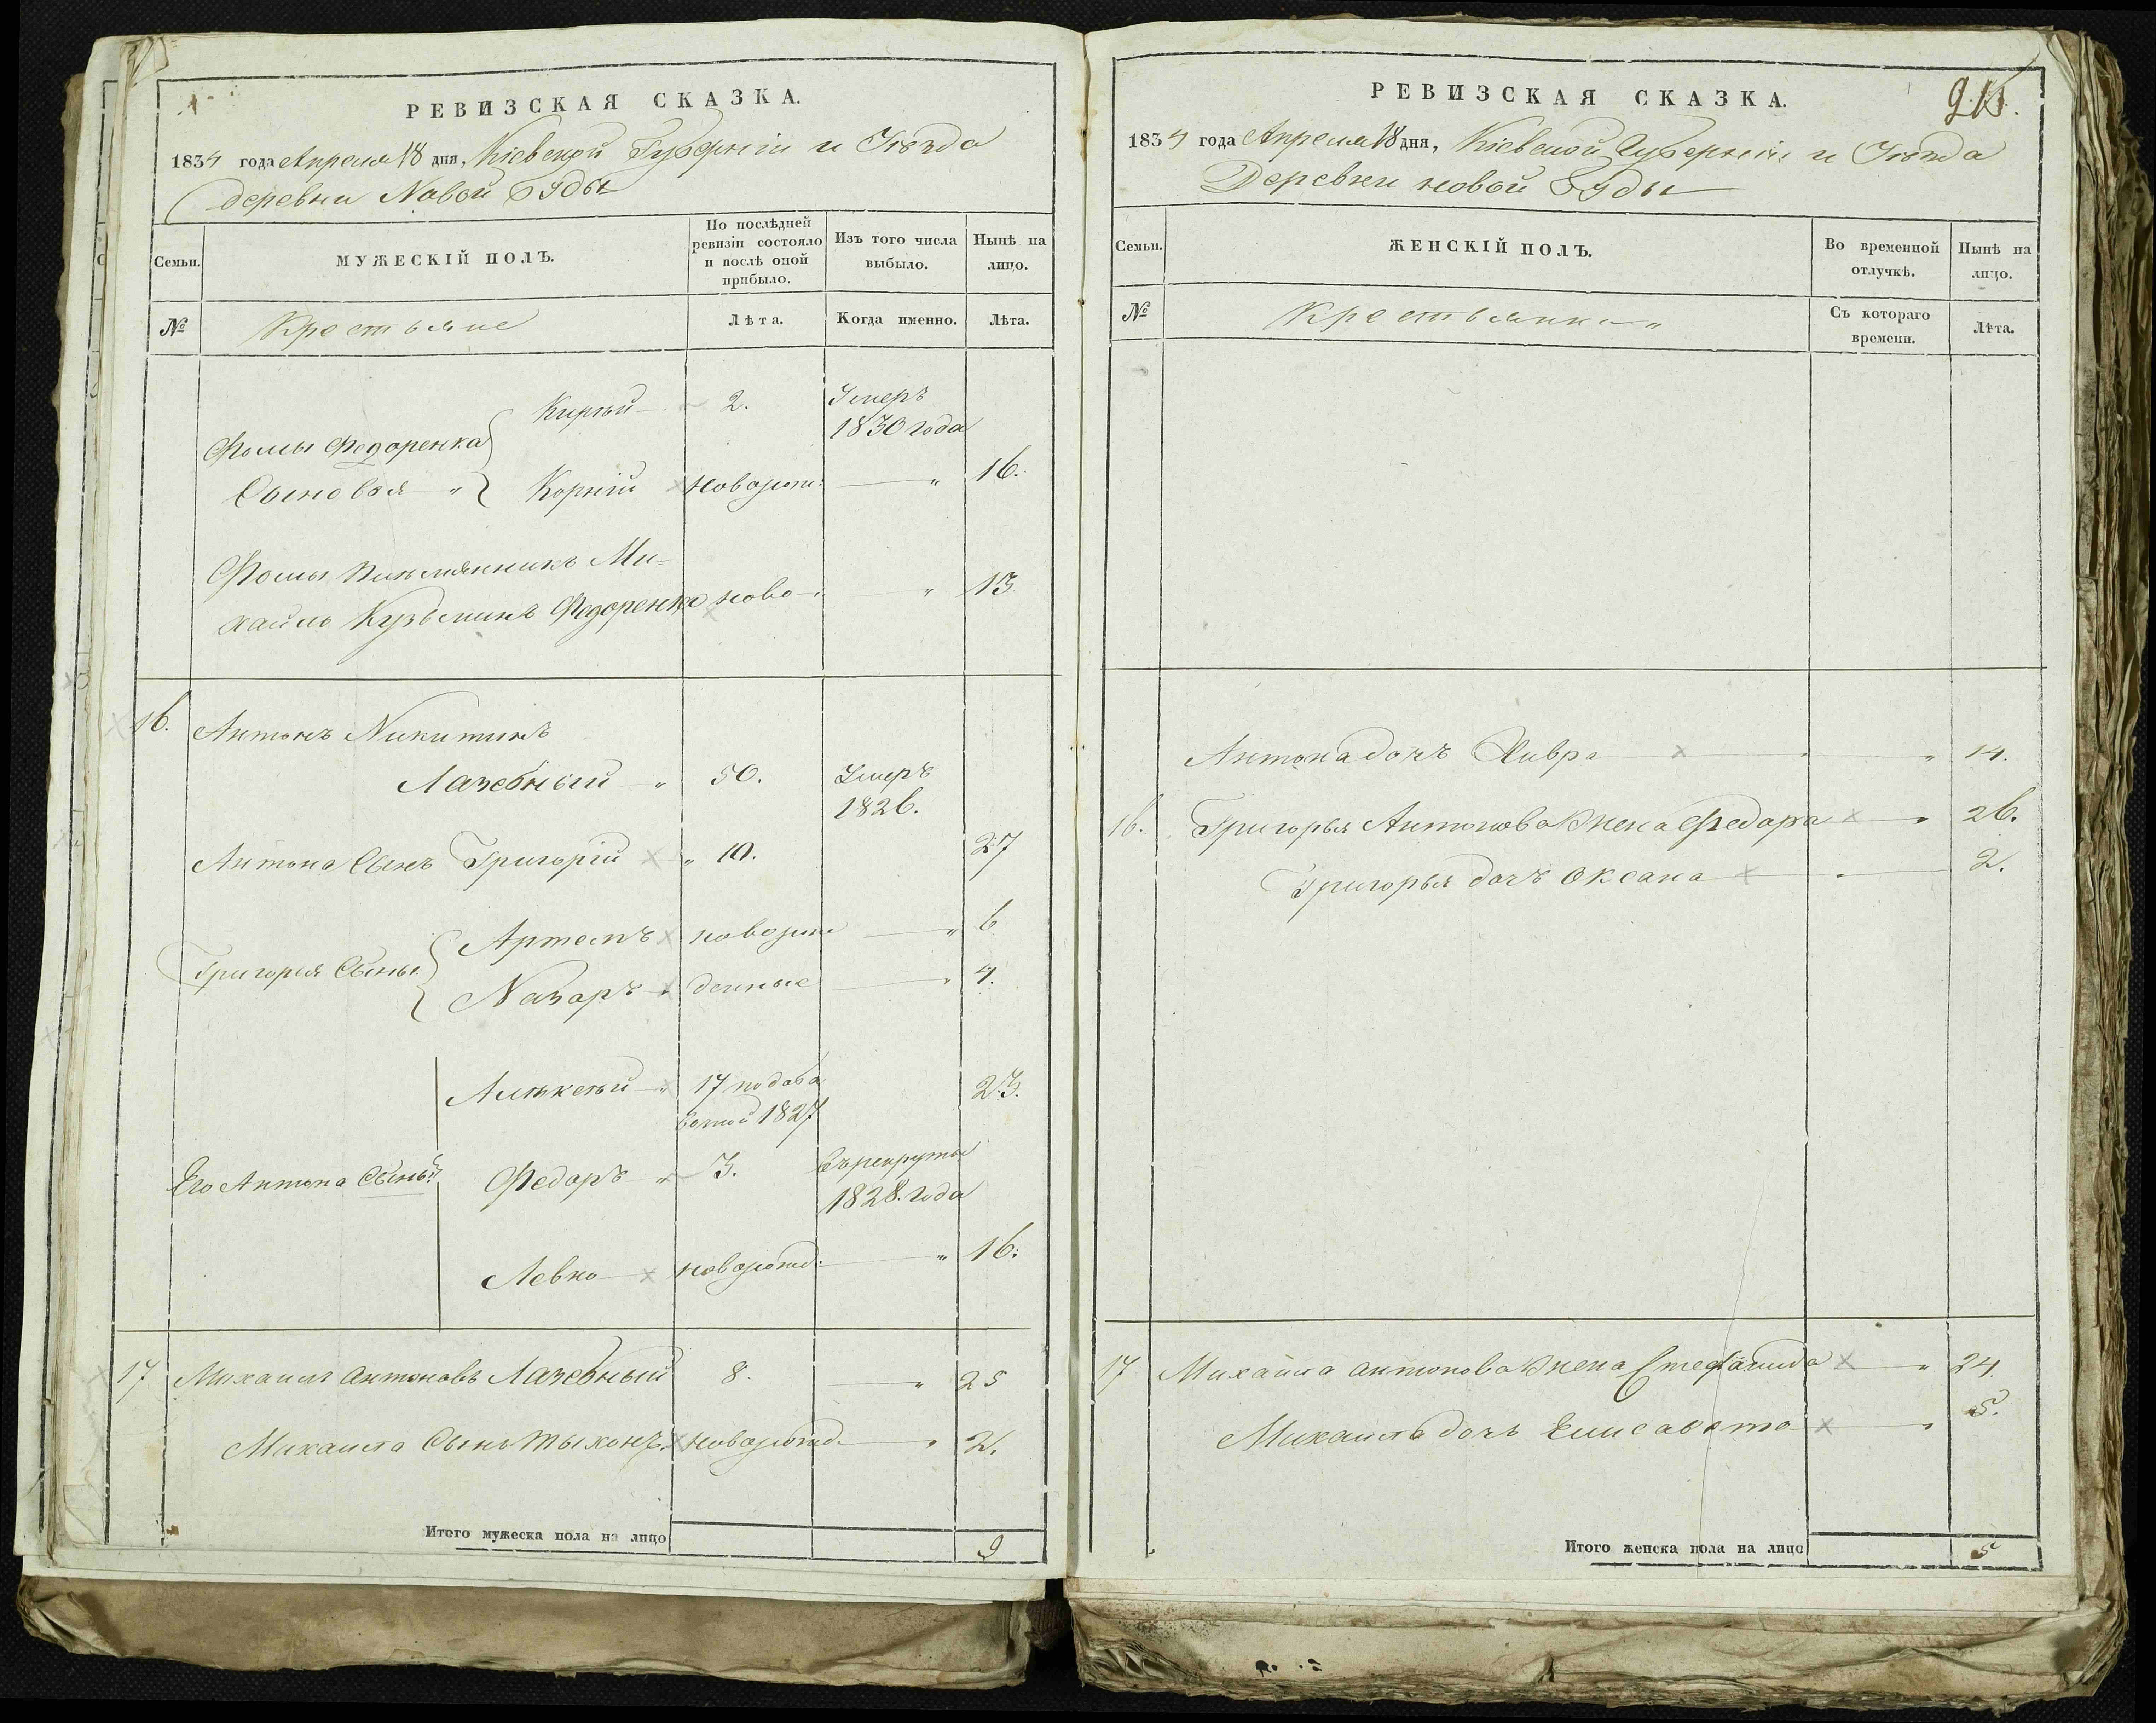 РЕВИЗСКАЯ СКАЗКА.
1834 года Апреля 18 дня, Кіевской Губерніи и Уѣзда
деревни Новой Буды
Семьи.
МУЖЕСКІЙ ПОЛЪ.
По послѣдней ревизіи состояло и послѣ оной прибыло.
Изъ того числа выбыло.
Нынѣ на лицо.
№
Крестьяне
Лѣта.
Когда именно.
Лѣта.
Кирѣй 2. Умеръ
1830 года
Фомы Федоренка
Сыновья Корній новорож: " 16.
Фомы племянникъ Ми=
хайло Кузьминъ Федоренко ново " 13.
16. Антонъ Никитинъ
Лазебный " 50. Умеръ
1826.
Антона Сынъ Григорій " 10. 27
Артемъ новорож " 6
Григорія Сыны
Назаръ денные " 4.
Алѣксѣй " 17 23.
1827
Его Антона Сыны Федоръ " 3. Въ рекруты
1828. года
Левко новорожд: " 16.
17 Михаилъ Антоновъ Лазебный 8. " 25
Михаила Сынъ Тыхонъ новорожд. " 2.
Итого мужеска пола на лицо 9
РЕВИЗСКАЯ СКАЗКА.
1834 года Апреля 18 дня, Кіевской Губерніи и Уѣзда
Деревни новой Буды
Семьи.
ЖЕНСКІЙ ПОЛЪ.
Во временной отлучкѣ.
Нынѣ на лицо.
№
Крестьянки "
Съ котораго времени.
Лѣта.
Антона дочь Хивря " 14.
16. Григорья Антонова жена Федора " 26.
Григорья дочь Оксана " 2.
17 Михайла Антонова жена Стефанида " 24.
Михайла дочь Елисавета " 5.
Итого женска пола на лицо 5